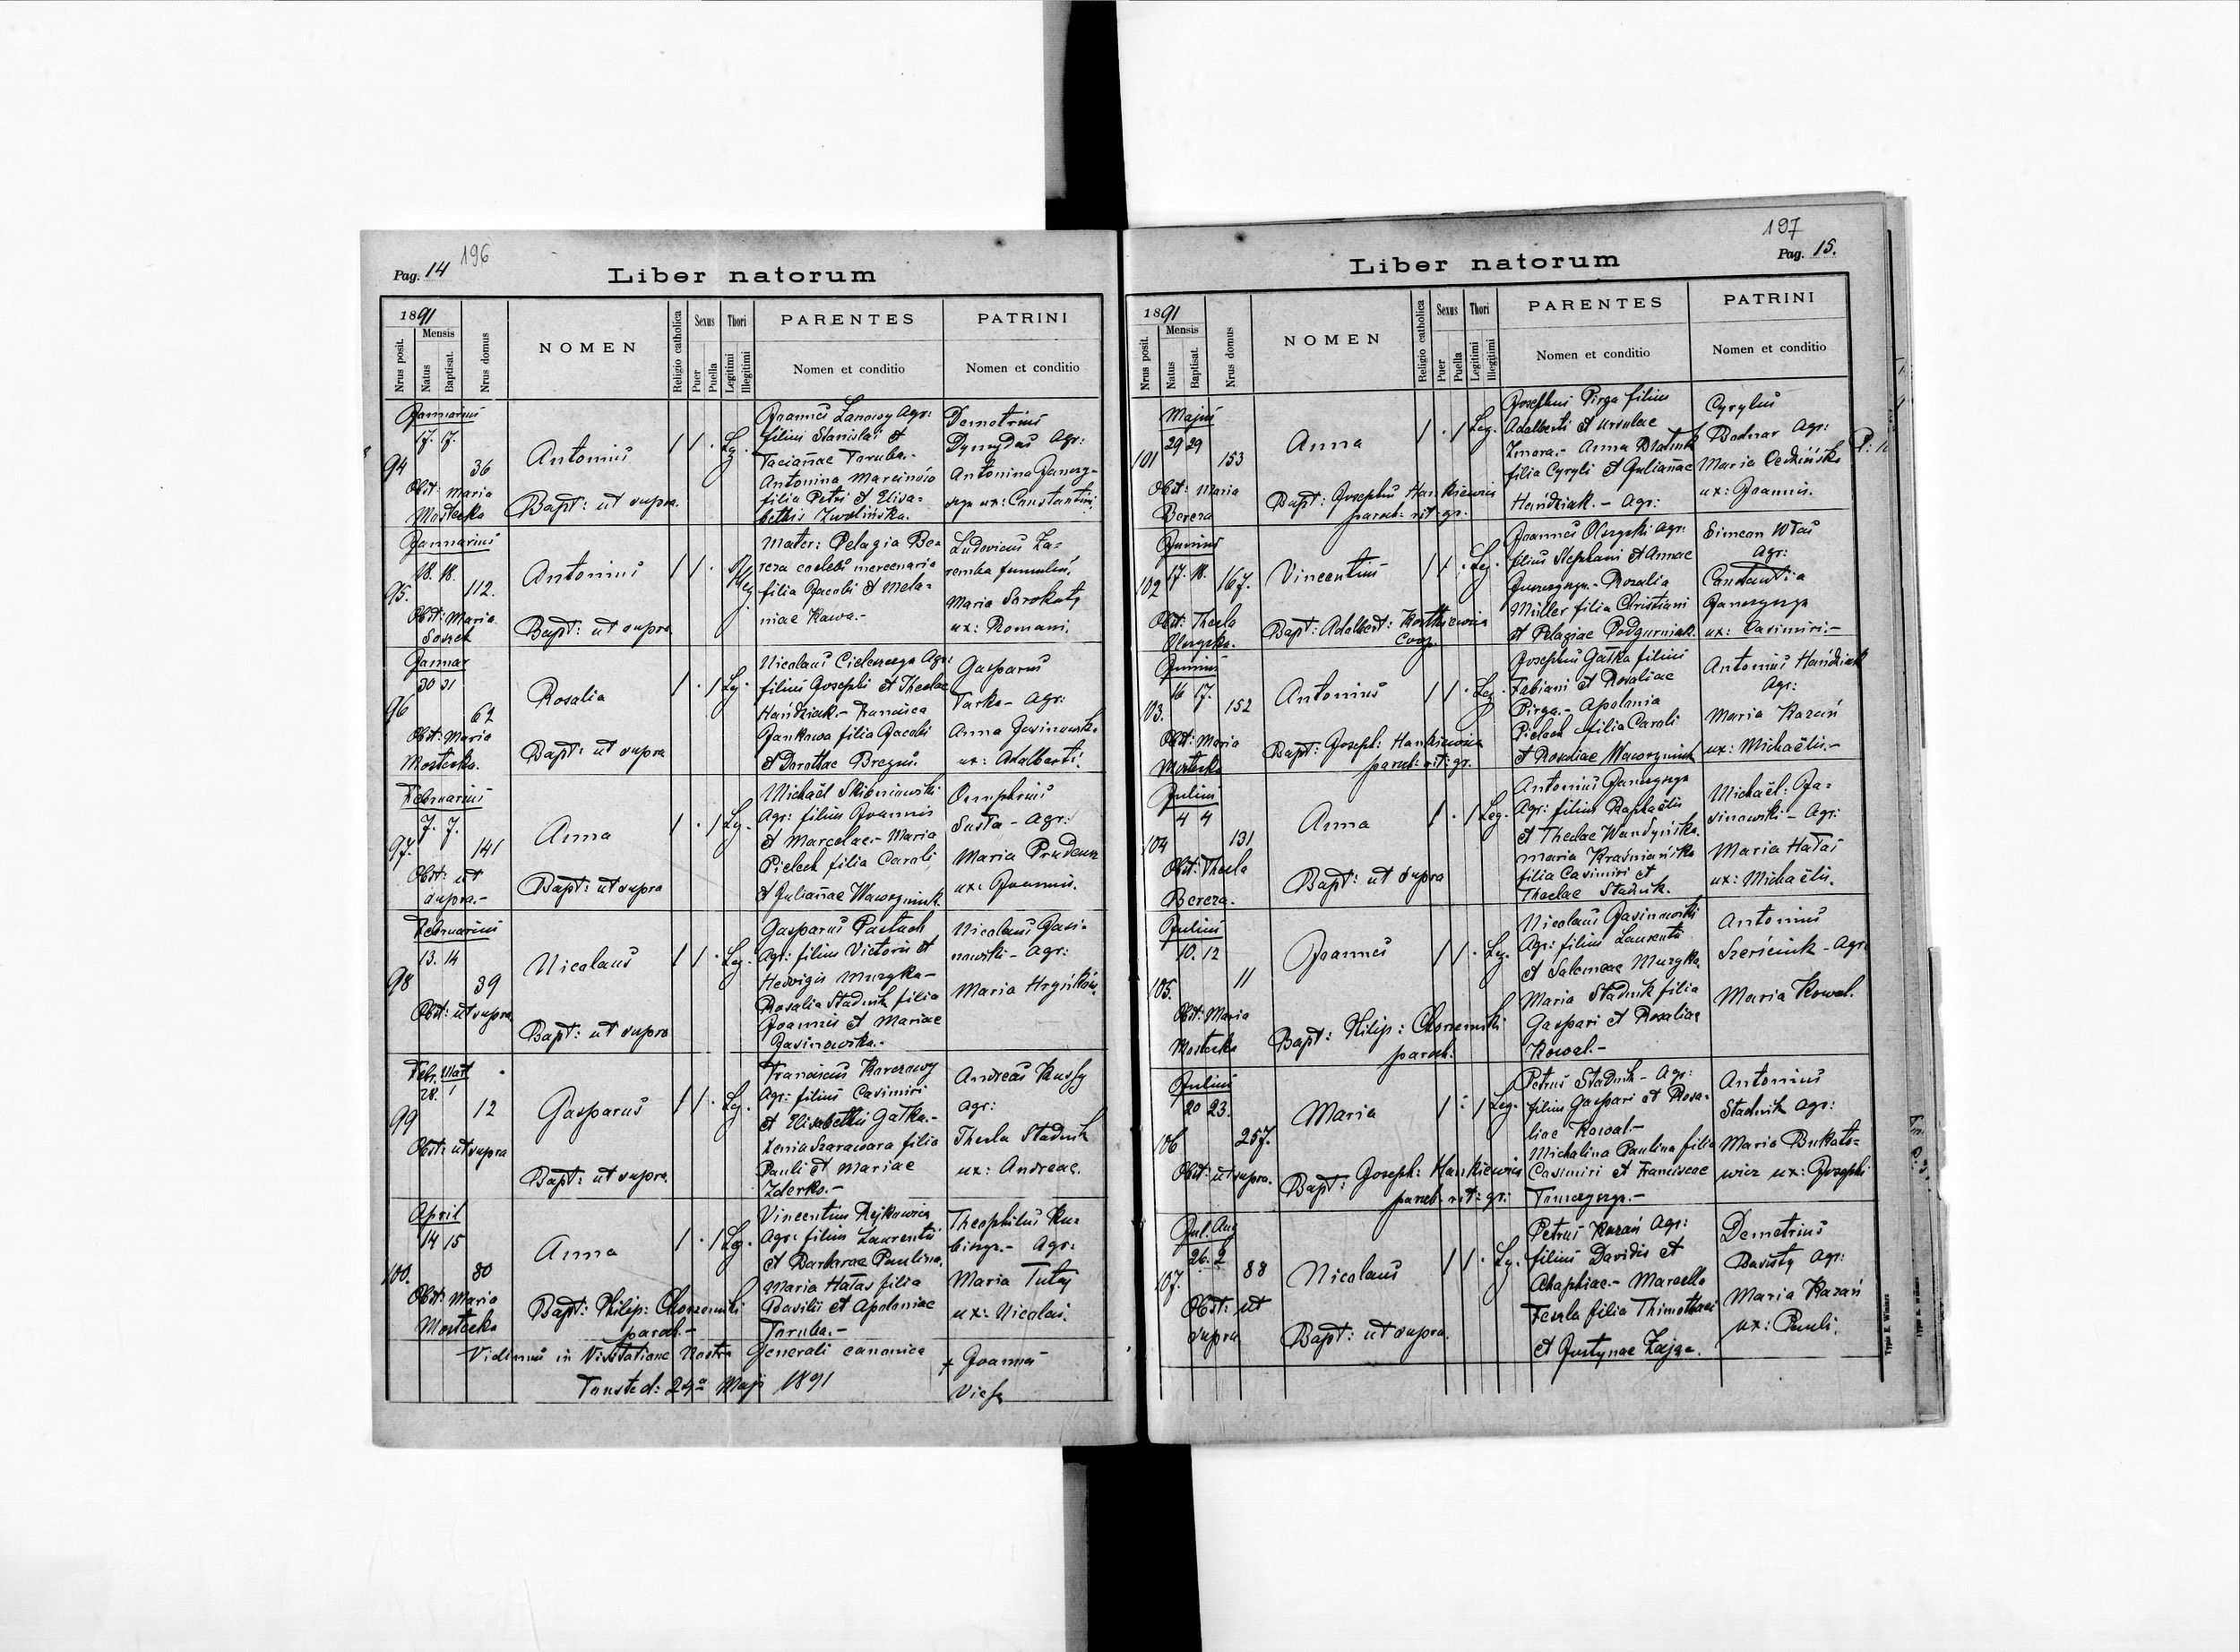 196
Pag. 14
Liber natorum
1891
Mensis
Nrus posit.
Natus
Baptisat.
Nrus domus
NOMEN
Religio catholica
Sexus
Puer
Puella
Thori
Legitimi
Illegitimi
PARENTES
Nomen et conditio
PATRINI
Nomen et conditio
Januarius
17. 17.
94
36
Obst: Maria
Mostecka
Antonius
Bapt: ut supra.
1 1 . Leg.
Joannes Lanowy Agr:
filius Stanislai et
Tacianae Taruba.-
Antonina Marcinów
filia Petri et Elisa-
bethis Zwolińska.
Demetrius
Agr:
Antonina
ux: Constantini
Januarius
18. 18.
95.
112.
Obst: Maria
Antonius
Bapt: ut supra
1 1 . Illeg
Mater: Pelagia Be-
reza coelebs mercenaria
filia Jacobi et Mela-
niae Kawa.-
Ludovicus Za-
remba famulus.
Maria Sorokaty
ux: Romani.
Januar
30 31
96
62
Obst: Maria
Mostecka.
Rosalia
Bapt: ut supra
1 . 1 Leg.
Nicolaus Agr:
filius Josephi et Theclae
Hańdziak.- Francisca
Jankowa filia Jacobi
et Dorothae
Gasparus
Turko- Agr:
Anna Jasinowska
ux: Adalberti.
Februarius
7. 7.
97.
141
Obst: ut
supra.-
Anna
Bapt: ut supra
1 . 1 Leg.
Michaël Skibniowski
Agr: filius Joannis
et Marcelae.- Maria
Pielech filia Caroli
et Julianae Wawryniuk.
Onuphrius
Susta- Agr:
Maria
ux: Joannis.
Februarius
13. 14
98
39
Obst: ut supra.
Nicolaus
Bapt: ut supra
1 1 . Leg.
Gasparus Pastuch
Agr: filius Victoris et
Hedvigis Muzyka-
Rosalia Stadnik filia
Joannis et Mariae
Jasinowska.-
Nicolaus Jasi-
nowski- Agr:
Maria
Febr. Mart
28. 1
99
12
Obst: ut supra
Gasparus
Bapt: ut supra.
1 1 . Leg.
Franciscus Korczowy
Agr: filius Casimiri
et Elisabethis Gałka.-
Xenia Szarawara filia
Pauli et Mariae
Zderko.-
Andreas
agr:
Thecla Stadnik
ux: Andreae.
April
14 15
100.
80
Obst: Maria
Mostecka
Anna
Bapt: Philip: Chorzemski
paroch.-
1 . 1 Leg.
Vincentius Rejkowicz
Agr: filius Laurentii
et Barbarae Paulina.
Maria Hałas filia
Basilii et Apoloniae
Taruba.-
Theophilus
Agr:
Maria Tutaj
ux: Nicolai.
Vidimus in Visitatione Nostra Generali canonica
24a Maji 1891
+ Joannes
197
Pag. 15.
Liber natorum
1891
Mensis
Nrus posit.
Natus
Baptisat.
Nrus domus
NOMEN
Religio catholica
Sexus
Puer
Puella
Thori
Legitimi
Illegitimi
PARENTES
Nomen et conditio
PATRINI
Nomen et conditio
Majus
29 29
101
153
Obst: Maria
Bereza
Anna
Bapt: Josephus Hankiewicz
paroch: rit: gr.
1 . 1 Leg.
Josephus Pirga filius
Adalberti et Ursulae
Zmora.- Anna
filia Cyryli et Julianae
Hańdziak.- Agr:
Cyrylus
Bodnar Agr:
Maria
ux: Joannis.
Junius
17. 18.
102
167.
Obst: Thecla
Olszyska.
Vincentius
Bapt: Adalbert:
Coop.
1 1 . Leg.
Joannes Agr:
filius Stephani et Annae
Rosalia
Müller filia Christiani
et Pelagiae Podgurniak.
Simeon
Agr:
Constantia
ux: Casimiri.-
Junius
16 17.
103.
152
Obst: Maria
Mostecka
Antonius
Bapt: Joseph: Hankiewicz
paroch: rit: gr.
1 1 . Leg.
Josephus Gałka filius
Fabiani et Rosaliae
Pirga.- Apolonia
Pielech filia Caroli
et Rosaliae Wawryniuk
Antonius Hańdziak
Agr:
Maria Kazań
ux: Michaëlis.-
Julius
4 4
104
131
Obst: Thecla
Bereza.
Anna
Bapt: ut supra
1 . 1 Leg.
Antonius
Agr: filius Raphaëlis
et Theclae Wandyńska.
Maria Kraśniańska
filia Casimiri et
Theclae Stadnik.
Michaël: Ja-
sinowski- Agr:
Maria Hałas
ux: Michaëlis.
Julius
10. 12
105.
11
Obst: Maria
Mostecka
Joannes
Bapt: Philip: Chorzemski
paroch.
1 1 . Leg.
Nicolaus Jasinowski
Agr: filius Laurentii
et Salomeae Muzyka
Maria Stadnik filia
Gaspari et Rosaliae
Kowal.-
Antonius
Agr.
Maria Kowal.
Julius
20 23.
106
257.
Obst: ut supra.
Maria
Bapt: Joseph: Hankiewicz
paroch. rit: gr:
1 : 1 Leg.
Petrus Stadnik- Agr:
filius Gaspari et Rosa-
liae Kowal.-
Michalina Paulina filia
Casimiri et Franciscae
Antonius
Stadnik agr:
Maria Bukato-
wicz ux: Josephi
Jul. Aug
26. 2
107.
88
Obst: ut
supra
Nicolaus
Bapt: ut supra.
1 1 . Leg.
Petrus Kazań Agr:
filius Davidis et
Marcella
Feszla filia Thimothaei
et Justynae Zając.
Demetrius
Agr:
Maria Kazań
ux: Pauli.
Typis E. Winiarz